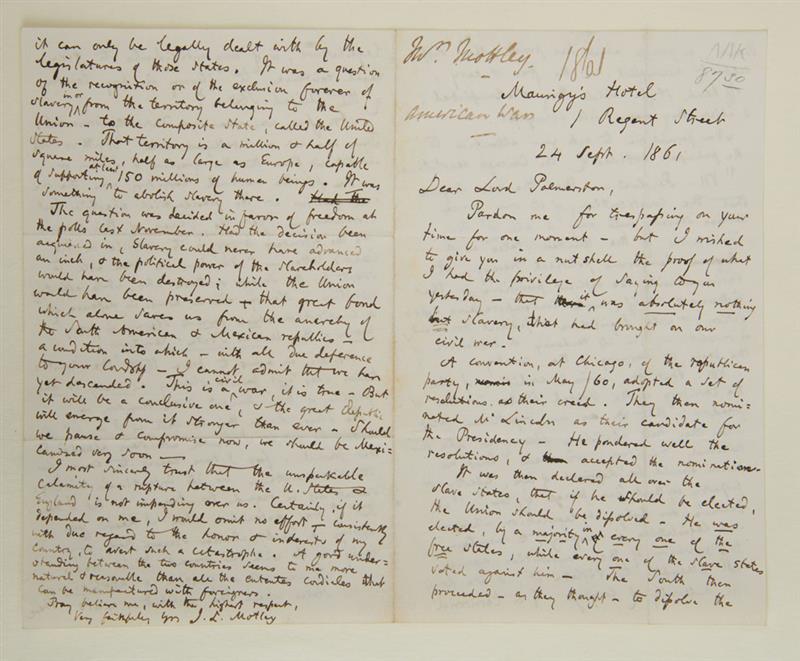 Mrs. Motley. 1861
8750
American War
Maurigy's Hotel
1 Regent Street
24 Sept. 1861
Dear Lord Palmerston,
Pardon me for trespassing on your
time for one moment – but I wished
to give you in a nutshell the proof of what
I had the privilege of saying to you
yesterday – that it was absolutely nothing
but slavery, that had brought on our
civil war.
A convention, at Chicago, of the republican
party, in May /60, adopted a set of
resolutions as their creed. They then nomi=
nated Mr Lincoln as their candidate for
the Presidency – He pondered well the
resolutions, & accepted the nomination.
It was then declared all over the
slave States, that if he should be elected,
the Union should be dissolved – He was
elected, by a majority in every one of the
free states, while every one of the slave States
voted against him – The South then
proceeded – as they thought – to dissolve the
it can only be legally dealt with by the
legislatures of those States. It was a question
of the recognition or of the exclusion forever of
slavery in or from the territory belonging to the
Union – to the composite State, called the United
States. That territory is a million & half of
square miles, half as large as Europe, capable
of supporting at least 150 millions of human beings. It was
something to abolish slavery there. Had the
The question was decided in favor of freedom at
the polls last November. Had the decision been
acquiesced in, Slavery could never have advanced
an inch, & the political power of the slaveholders
would have been destroyed; while the Union
would have been preserved – that great bond
which alone saves us from the anarchy of
the South American & Mexican republics –
a condition into which – with all due deference
to your Lordship – I cannot admit that we have
yet descended. This is a civil war, it is true – But
it will be a conclusive one, & the great Republic
will emerge from it stronger than ever – Should
we pause & compromise now, we should be Mexi=
canized very soon –
I most sincerely trust that the unspeakable
calamity of a rupture between the U. States &
England is not impending over us. Certainly, if it
depended on me, I would omit no effort – consistently
with due regard to the honor & interests of my
Country, to avert such a catastrophe. A good under=
standing between the two countries seems to me more
natural & reasonable than all the ententes cordiales that
can be manufactured with foreigners.
Pray believe me, with the highest respect,
Very faithfully Yrs J. L. Motley